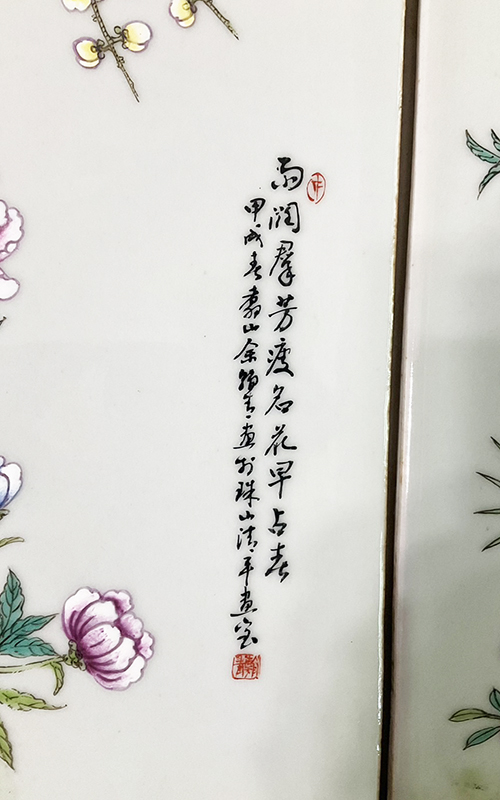 雨潤羣芳瘦名花早占春
甲戌春翥山余翰青畫於珠山清平畫室